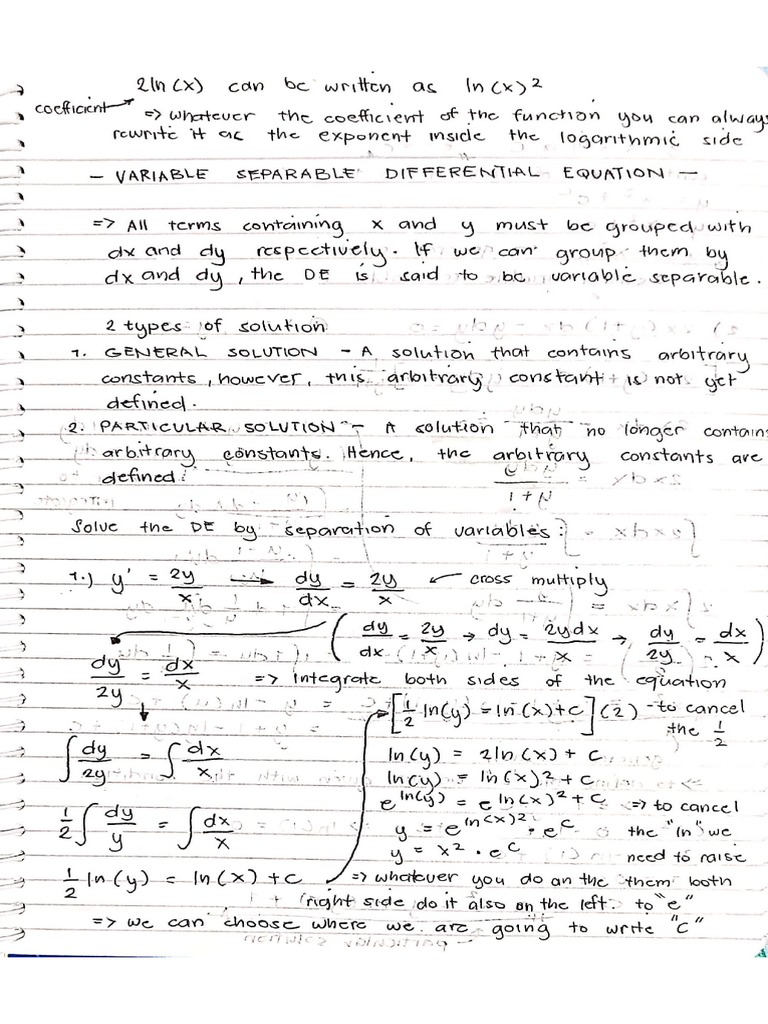 2ln(x) can be written as ln(x)²
coefficient
=> whatever the coefficient of the function you can always
rewrite it as the exponent inside the logarithmic side
- VARIABLE SEPARABLE DIFFERENTIAL EQUATION -
=> All terms containing x and y must be grouped with
dx and dy respectively. If we can group them by
dx and dy, the DE is said to be variable separable.
2 types of solution
1. GENERAL SOLUTION - A solution that contains arbitrary
constants, however, this arbitrary constant is not yet
defined.
2. PARTICULAR SOLUTION - A solution that no longer contains
arbitrary constants. Hence, the arbitrary constants are
defined.
Solve the DE by separation of variables:
1.) y' = 2y/x → dy/dx = 2y/x ← cross multiply
(dy/dx = 2y/x → dy = 2ydx/x → dy/2y = dx/x)
dy/2y = dx/x => integrate both sides of the equation
[1/2 ln(y) = ln(x)+c](2) - to cancel
the 1/2
∫ dy/2y = ∫ dx/x
ln(y) = 2ln(x) + c
ln(y) = ln(x)² + c
e^ln(y) = e^ln(x)²+c => to cancel
1/2 ∫ dy/y = ∫ dx/x
y = e^ln(x)² · e^c the "ln" we
y = x² · e^c need to raise
1/2 ln(y) = ln(x) + c => whatever you do on the them both
right side do it also on the left. to "e"
=> we can choose where we are going to write "c"